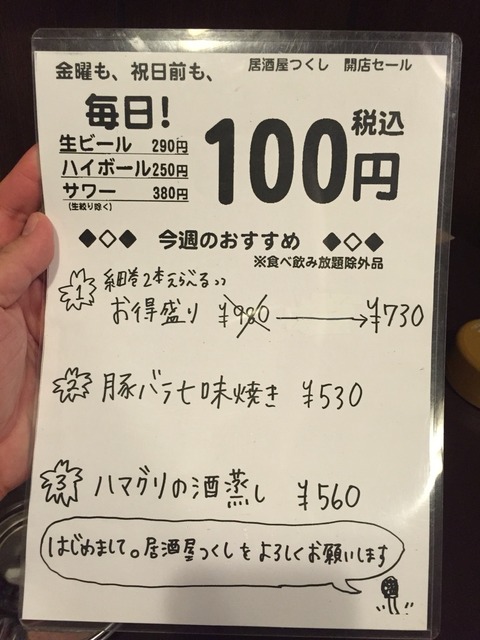 金曜も、祝日前も、
居酒屋つくし 開店セール
毎日!
生ビール 290円
ハイボール250円
サワー 380円
(生絞り除く)
100円
税込
◆◇◆ 今週のおすすめ ◆◇◆
※食べ飲み放題除外品
1 細巻2本えらべる♪♪
お得盛り ¥980 → ¥730
2 豚バラ七味焼き ¥530
3 ハマグリの酒蒸し ¥560
はじめまして。居酒屋つくしをよろしくお願いします